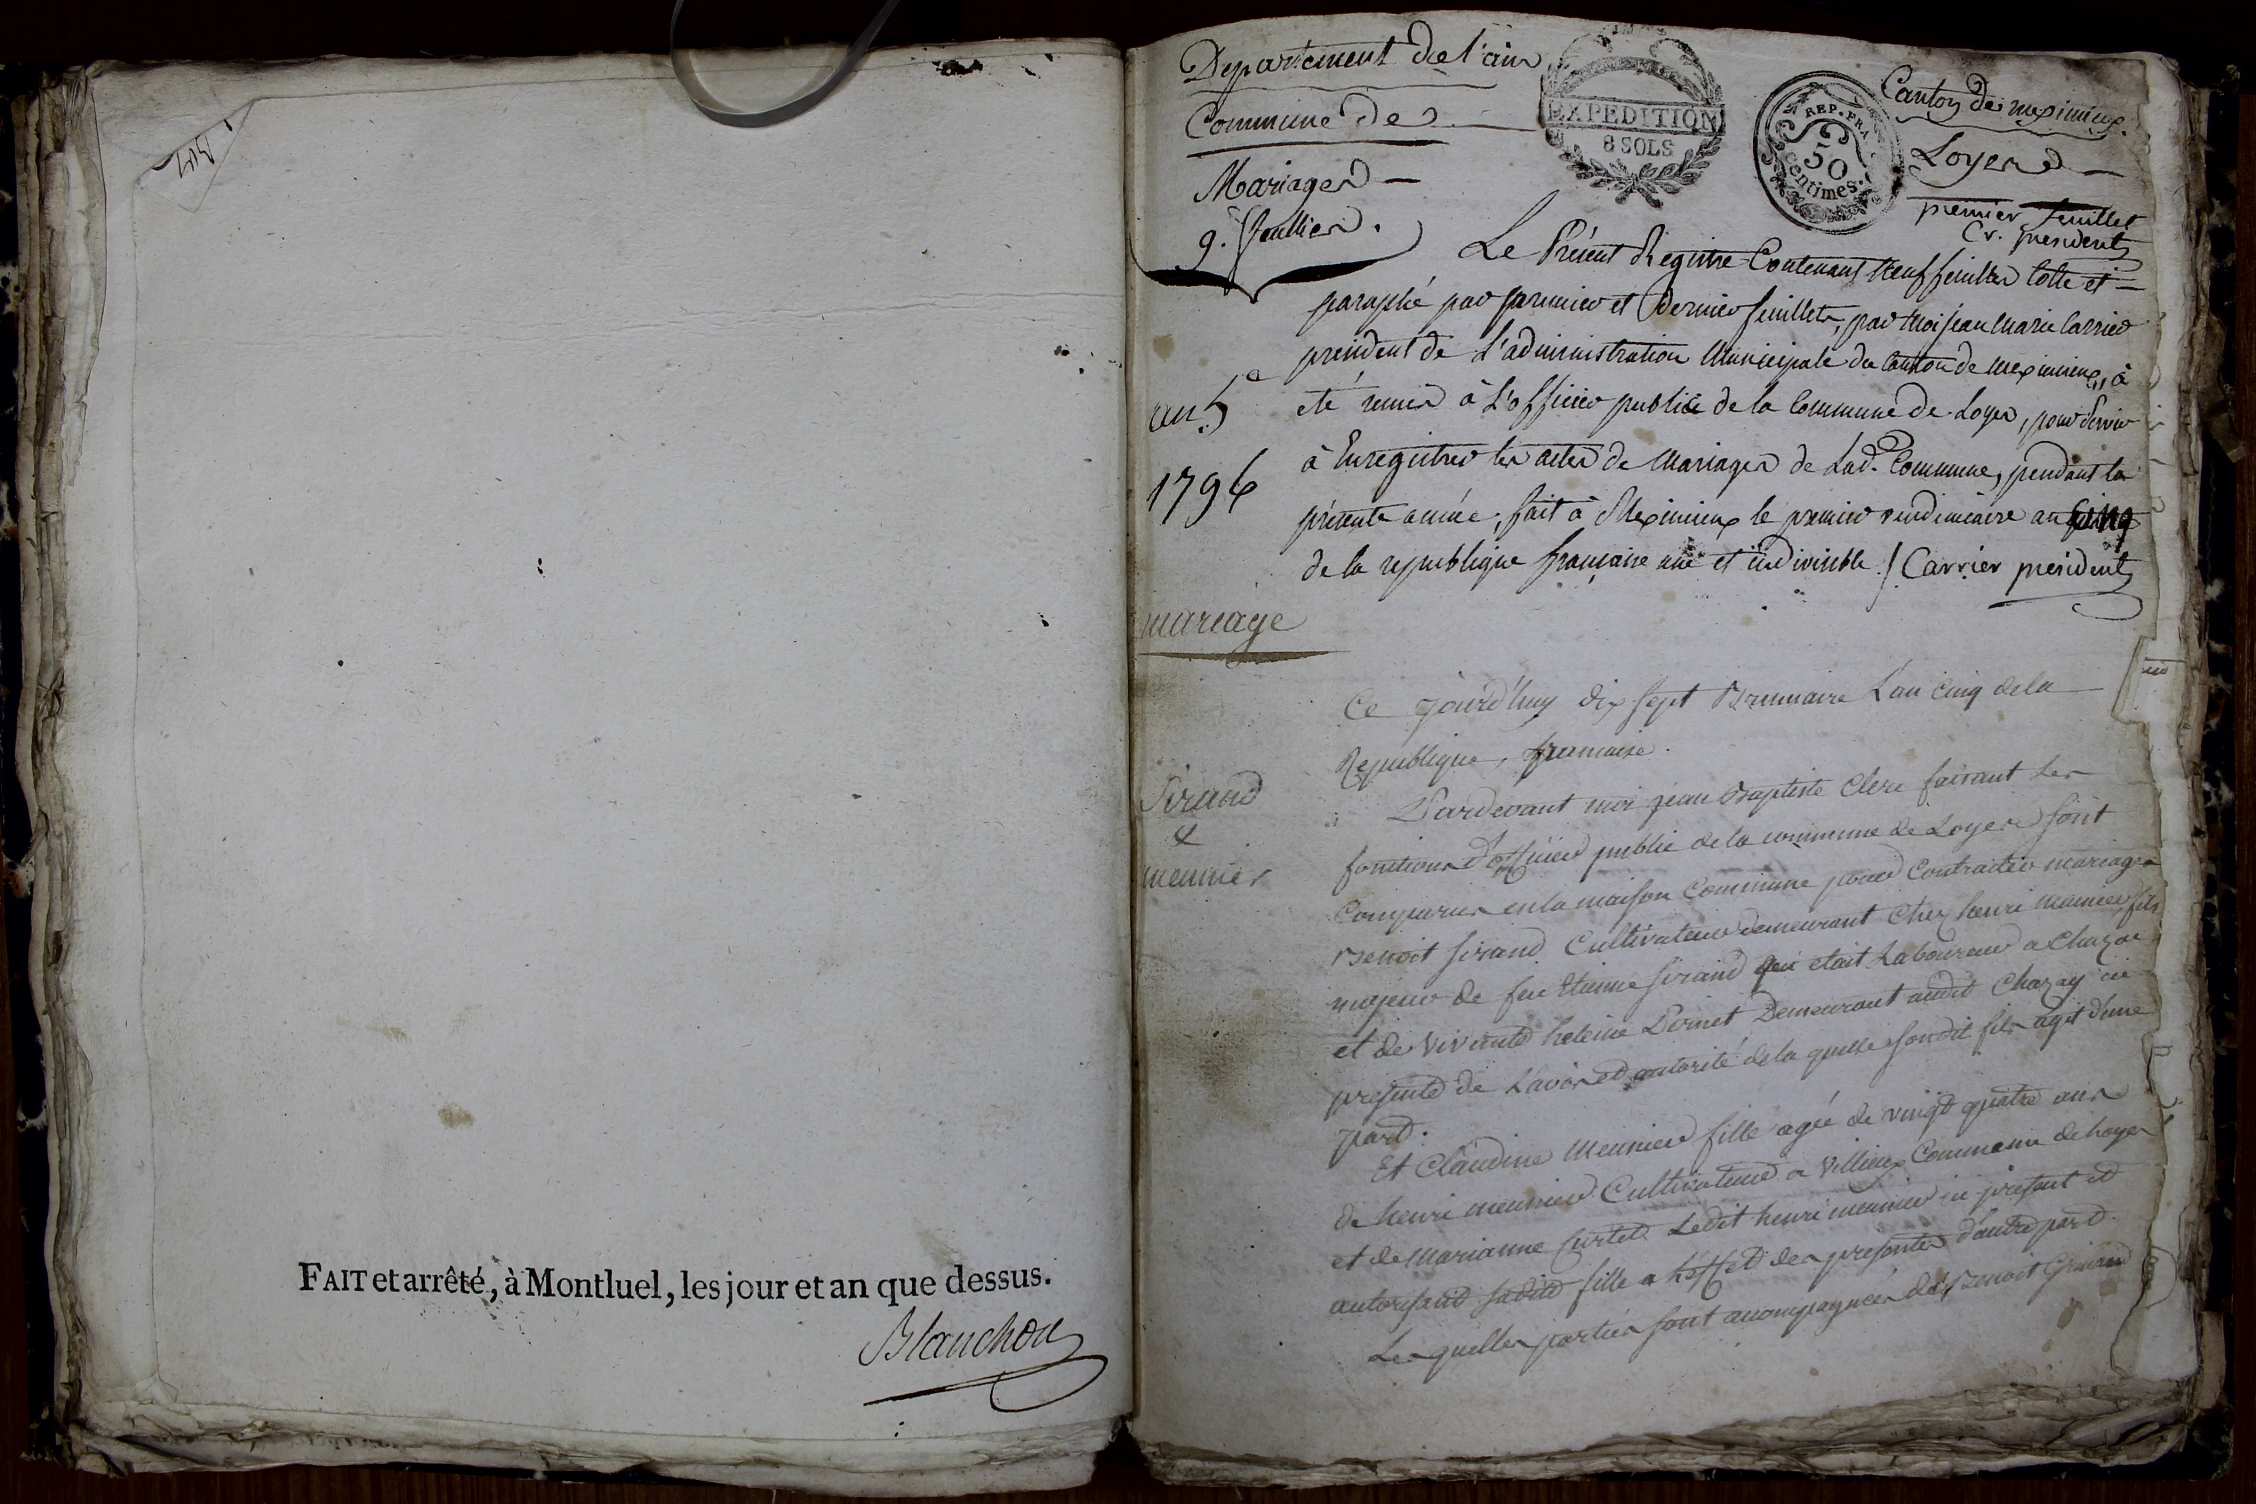 FAIT et arrêté, à Montluel, les jour et an que dessus.
Blanchon
Departement de l'ain
Commune de
Mariages
9. feuilles.
EXPEDITION
8 SOLS
REP. FRA.
50
centimes.
Canton de meximieux.
Loyes
premier feuillet
Cr. president
Le Présent Registre Contenant Neuf feuilles Cotté et
paraphé par premier et dernier feuillets, par moi jean marie Carrier
president de l'administration Municipale du Canton de meximieux, à
eté remis à L'officier public de la Commune de Loyes, pour servir
à Enregistrer les actes de Mariages de Lad. Commune, pendant la
présente année, fait à Meximieux le premier vendimiaire an cinq
de la republique française une et indivisible / Carrier president
an 5
1796
mariage
Sirand
&
meunier
Ce jourd'huy dix sept Brumaire L'an cinq de la
Republique, francaise.
Pardevant moi jean Baptiste Clerc faisant Les
fonctions d'officier public de la commune de Loyes sont
Comparus en la maison Commune pour Contracter mariage
Benoit sirand Cultivateur demeurant chez henri meunier, fils
majeur de feu Etienne sirand qui etait Laboureur a Chazai
et de vivante heleine Pernet Demeurant audit Chazay ici
presente de L'avis et autorité de la quelle sondit fils agit d'une
part.
Et Claudine Meunier fille agée de vingt quatre ans
de henri meunier Cultivateur a Villieux Commune de Loyes
et de Marianne Curtet Ledit henri meunier ici present et
autorisant sadite fille a L'effet des presentes d'autre part.
Les quelles parties sont accompagnées de Benoit